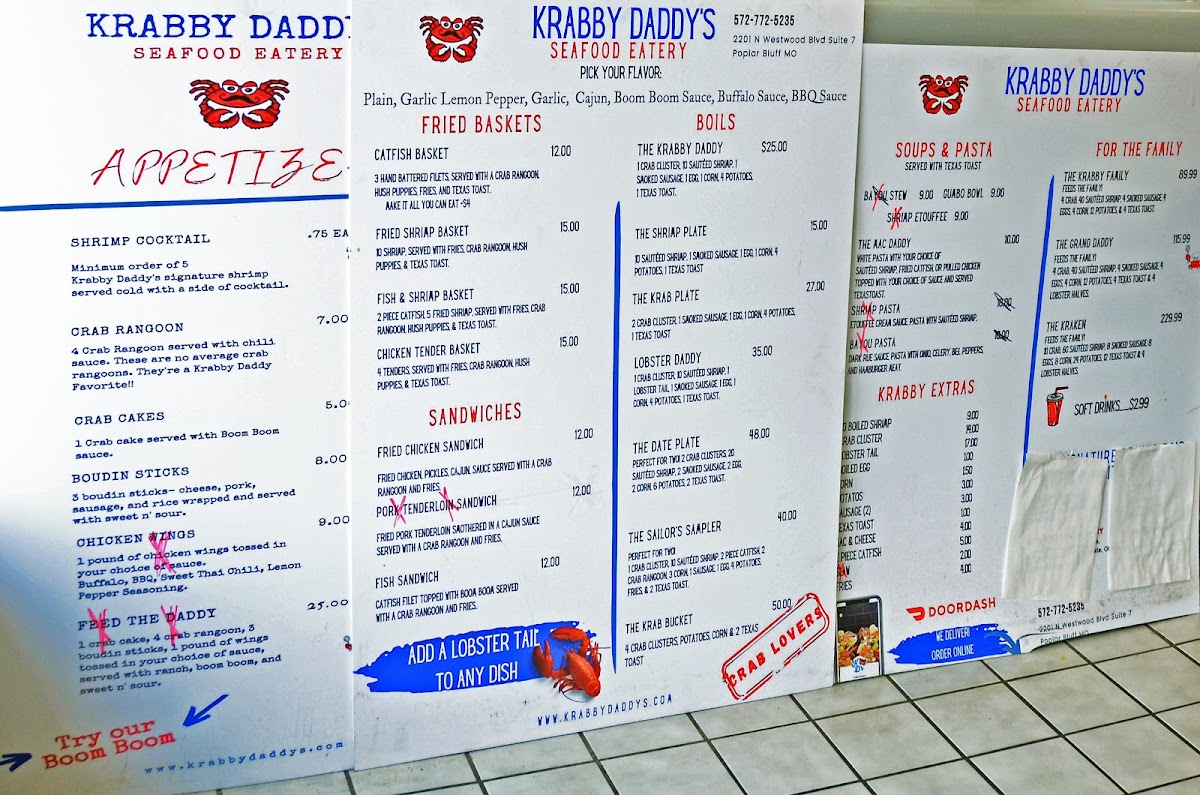 KRABBY DADDY
SEAFOOD EATERY
APPETIZE
SHRIMP COCKTAIL .75 EA
Minimum order of 5
Krabby Daddy's signature shrimp
served cold with a side of cocktail.
CRAB RANGOON 7.00
4 Crab Rangoon served with chili
sauce. These are no average crab
rangoons. They're a Krabby Daddy
Favorite!!
CRAB CAKES 5.00
1 Crab cake served with Boom Boom
sauce.
BOUDIN STICKS 8.00
3 boudin sticks- cheese, pork,
sausage, and rice wrapped and served
with sweet n' sour.
CHICKEN WINGS 9.00
1 pound of chicken wings tossed in
your choice of sauce.
Buffalo, BBQ, Sweet Thai Chili, Lemon
Pepper Seasoning.
FEED THE DADDY 25.00
1 crab cake, 4 crab rangoon, 3
boudin sticks, 1 pound of wings
tossed in your choice of sauce,
served with ranch, boom boom, and
sweet n' sour.
Try our
Boom Boom
www.krabbydaddys.com
KRABBY DADDY'S
SEAFOOD EATERY
572-772-5235
2201 N Westwood Blvd Suite 7
Poplar Bluff MO
PICK YOUR FLAVOR:
Plain, Garlic Lemon Pepper, Garlic, Cajun, Boom Boom Sauce, Buffalo Sauce, BBQ Sauce
FRIED BASKETS
CATFISH BASKET 12.00
3 HAND BATTERED FILETS, SERVED WITH A CRAB RANGOON,
HUSH PUPPIES, FRIES, AND TEXAS TOAST.
MAKE IT ALL YOU CAN EAT -$4
FRIED SHRIMP BASKET 15.00
10 SHRIMP, SERVED WITH FRIES, CRAB RANGOON, HUSH
PUPPIES, & TEXAS TOAST.
FISH & SHRIMP BASKET 15.00
2 PIECE CATFISH, 5 FRIED SHRIMP, SERVED WITH FRIES, CRAB
RANGOON, HUSH PUPPIES, & TEXAS TOAST.
CHICKEN TENDER BASKET 15.00
4 TENDERS, SERVED WITH FRIES, CRAB RANGOON, HUSH
PUPPIES, & TEXAS TOAST.
SANDWICHES
FRIED CHICKEN SANDWICH 12.00
FRIED CHICKEN, PICKLES, CAJUN, SAUCE SERVED WITH A CRAB
RANGOON AND FRIES.
PORK TENDERLOIN SANDWICH 12.00
FRIED PORK TENDERLOIN SMOTHERED IN A CAJUN SAUCE
SERVED WITH A CRAB RANGOON AND FRIES.
FISH SANDWICH 12.00
CATFISH FILET TOPPED WITH BOOM BOOM SERVED
WITH A CRAB RANGOON AND FRIES.
ADD A LOBSTER TAIL
TO ANY DISH
BOILS
THE KRABBY DADDY $25.00
1 CRAB CLUSTER, 10 SAUTÉED SHRIMP, 1
SMOKED SAUSAGE, 1 EGG, 1 CORN, 4 POTATOES,
1 TEXAS TOAST.
THE SHRIMP PLATE 15.00
10 SAUTÉED SHRIMP, 1 SMOKED SAUSAGE, 1 EGG, 1 CORN, 4
POTATOES, 1 TEXAS TOAST
THE KRAB PLATE 27.00
2 CRAB CLUSTER, 1 SMOKED SAUSAGE, 1 EGG, 1 CORN, 4 POTATOES,
1 TEXAS TOAST
LOBSTER DADDY 35.00
1 CRAB CLUSTER, 10 SAUTÉED SHRIMP, 1
LOBSTER TAIL, 1 SMOKED SAUSAGE, 1 EGG, 1
CORN, 4 POTATOES, 1 TEXAS TOAST.
THE DATE PLATE 48.00
PERFECT FOR TWO! 2 CRAB CLUSTERS, 20
SAUTÉED SHRIMP, 2 SMOKED SAUSAGE, 2 EGG,
2 CORN, 6 POTATOES, 2 TEXAS TOAST.
THE SAILOR'S SAMPLER 40.00
PERFECT FOR TWO!
1 CRAB CLUSTER, 10 SAUTÉED SHRIMP, 2 PIECE CATFISH, 2
CRAB RANGOON, 3 CORN, 1 SAUSAGE, 1 EGG, 4 POTATOES,
FRIES, & 2 TEXAS TOAST.
THE KRAB BUCKET 50.00
4 CRAB CLUSTERS, POTATOES, CORN & 2 TEXAS
TOAST
CRAB LOVERS
WWW.KRABBYDADDYS.COM
KRABBY DADDY'S
SEAFOOD EATERY
SOUPS & PASTA
SERVED WITH TEXAS TOAST
BAYOU STEW 9.00 GUMBO BOWL 9.00
SHRIMP ETOUFFEE 9.00
THE MAC DADDY 10.00
WHITE PASTA WITH YOUR CHOICE OF
SAUTÉED SHRIMP, FRIED CATFISH, OR PULLED CHICKEN
TOPPED WITH YOUR CHOICE OF SAUCE AND SERVED
TEXASTOAST.
SHRIMP PASTA
ETOUFFEE CREAM SAUCE PASTA WITH SAUTÉED SHRIMP.
BAYOU PASTA
DARK RUE SAUCE PASTA WITH ONIO, CELERY, BELL PEPPERS,
AND HAMBURGER MEAT.
KRABBY EXTRAS
BOILED SHRIMP 9.00
CRAB CLUSTER 14.00
LOBSTER TAIL 17.00
BOILED EGG 1.00
CORN 1.50
POTATOS 3.00
SAUSAGE (2) 3.00
TEXAS TOAST 1.00
MAC & CHEESE 4.00
PIECE CATFISH 5.00
2.00
FRIES 4.00
DOORDASH
WE DELIVER!
ORDER ONLINE
FOR THE FAMILY
THE KRABBY FAMILY 89.99
FEEDS THE FAMILY!
4 CRAB, 40 SAUTÉED SHRIMP, 4 SMOKED SAUSAGE, 4
EGGS, 4 CORN, 12 POTATOES, & 4 TEXAS TOAST.
THE GRAND DADDY 115.99
FEEDS THE FAMILY!
4 CRAB, 40 SAUTÉED SHRIMP, 4 SMOKED SAUSAGE, 4
EGGS, 4 CORN, 12 POTATOES, 4 TEXAS TOAST & 4
LOBSTER HALVES.
THE KRAKEN 229.99
FEEDS THE FAMILY!
10 CRAB, 60 SAUTÉED SHRIMP, 8 SMOKED SAUSAGE, 8
EGGS, 8 CORN, 24 POTATOES, 12 TEXAS TOAST & 4
LOBSTER HALVES.
SOFT DRINKS....$2.99
572-772-5235
2201 N Westwood Blvd Suite 7
Poplar Bluff MO